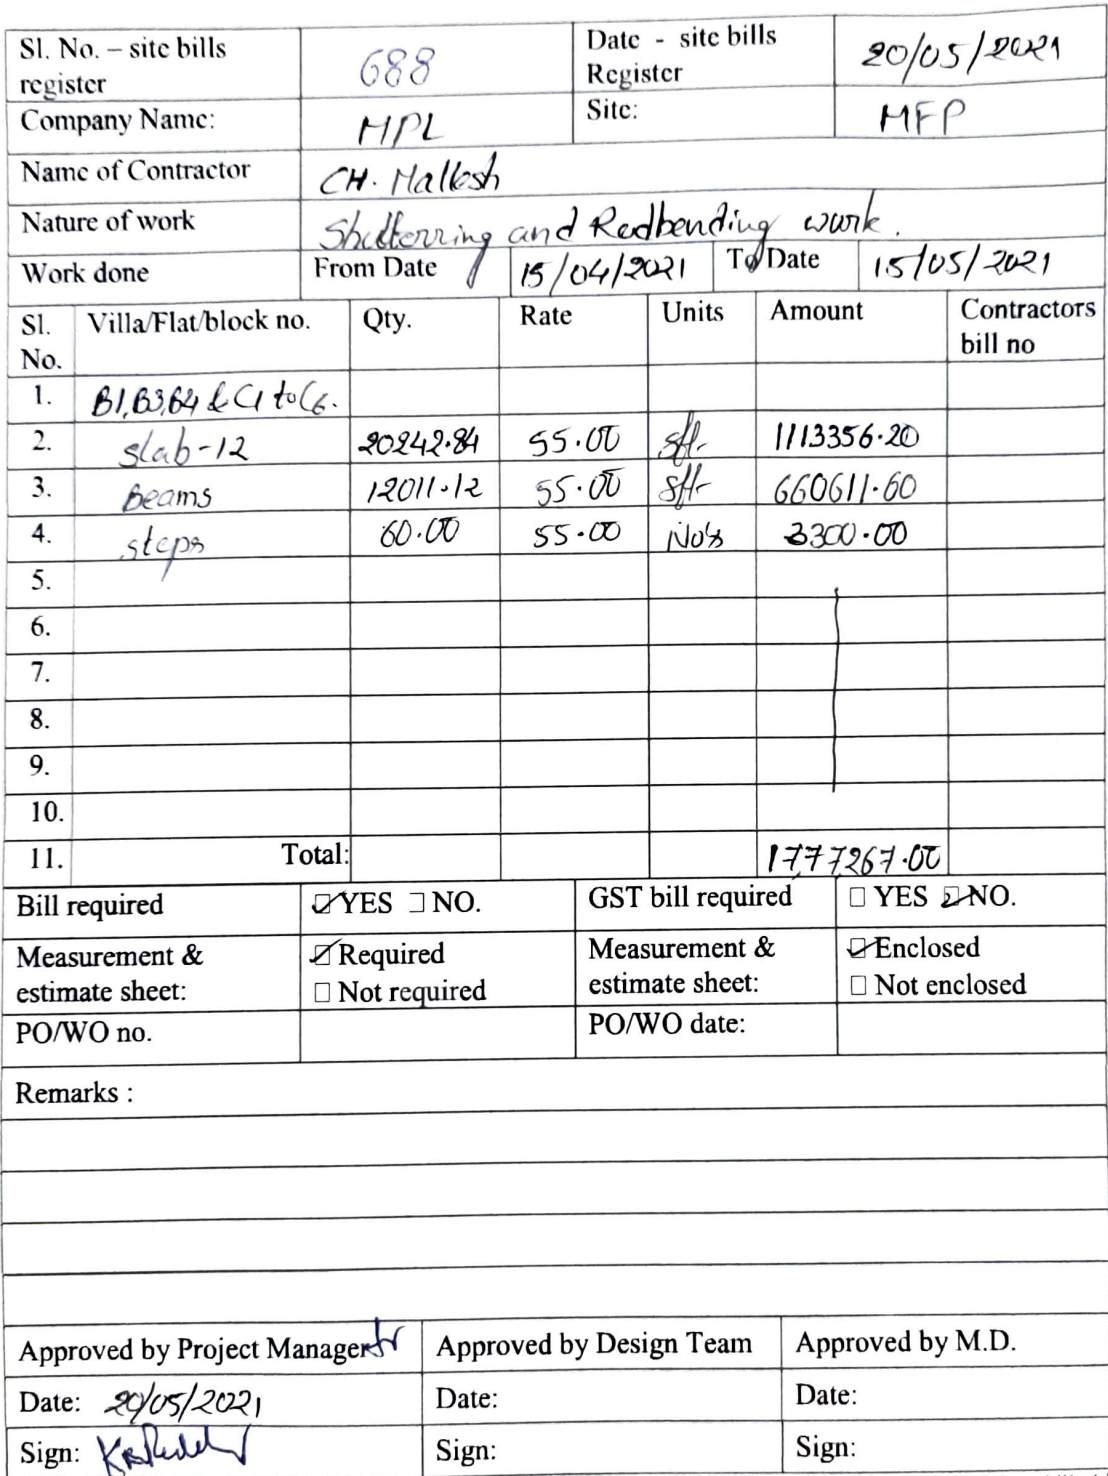 Sl. No. – site bills register 688 Date - site bills Register 20/05/2021
Company Name: MPL Site: MFP
Name of Contractor CH. Mallesh
Nature of work Shutterring and Rodbending work.
Work done From Date 15/04/2021 To Date 15/05/2021
Sl. No. Villa/Flat/block no. Qty. Rate Units Amount Contractors bill no
1. B1,B3,B4 & C1 to C6.
2. slab-12 20242.84 55.00 sft- 1113356.20
3. Beams 12011.12 55.00 sft- 660611.60
4. steps 60.00 55.00 No's 3300.00
5.
6.
7.
8.
9.
10.
11. Total: 1777267.00
Bill required ☑ YES ☐ NO. GST bill required ☐ YES ☑ NO.
Measurement & estimate sheet: ☑ Required ☐ Not required Measurement & estimate sheet: ☑ Enclosed ☐ Not enclosed
PO/WO no. PO/WO date:
Remarks :
Approved by Project Manager Approved by Design Team Approved by M.D.
Date: 20/05/2021 Date: Date:
Sign: Sign: Sign: